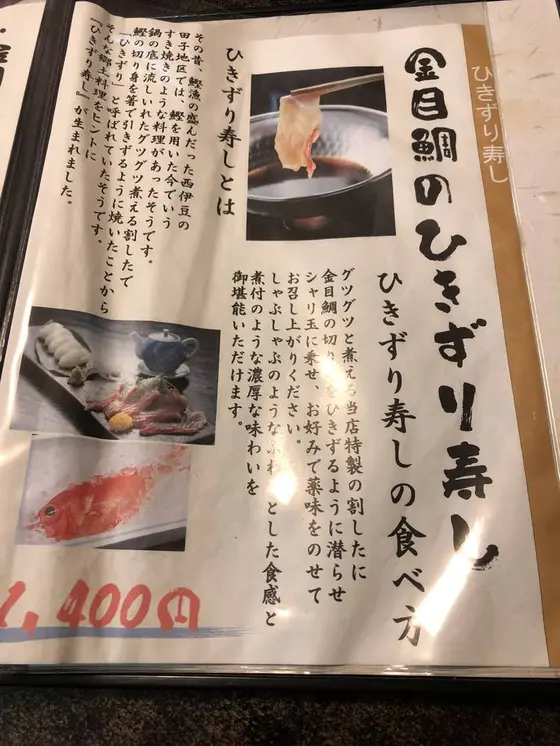 ひきずり寿し
金目鯛のひきずり寿し
ひきずり寿しの食べ方
グツグツと煮える当店特製の割したに
金目鯛の切り身をひきずるように潜らせ
シャリ玉に乗せ、お好みで薬味をのせて
お召し上がりください。
しゃぶしゃぶのようなふわっとした食感と
煮付のような濃厚な味わいを
御堪能いただけます。
ひきずり寿しとは
その昔、鰹漁の盛んだった西伊豆の
田子地区では、鰹を用いた今でいう
すき焼きのような料理があったそうです。
鍋の底に流しいれたグツグツ煮える割したで
鰹の切り身を箸で引きずるように焼いたことから
「ひきずり」と呼ばれていたそうです。
そんな郷土料理をヒントに
「ひきずり寿し」が生まれました。
,400円